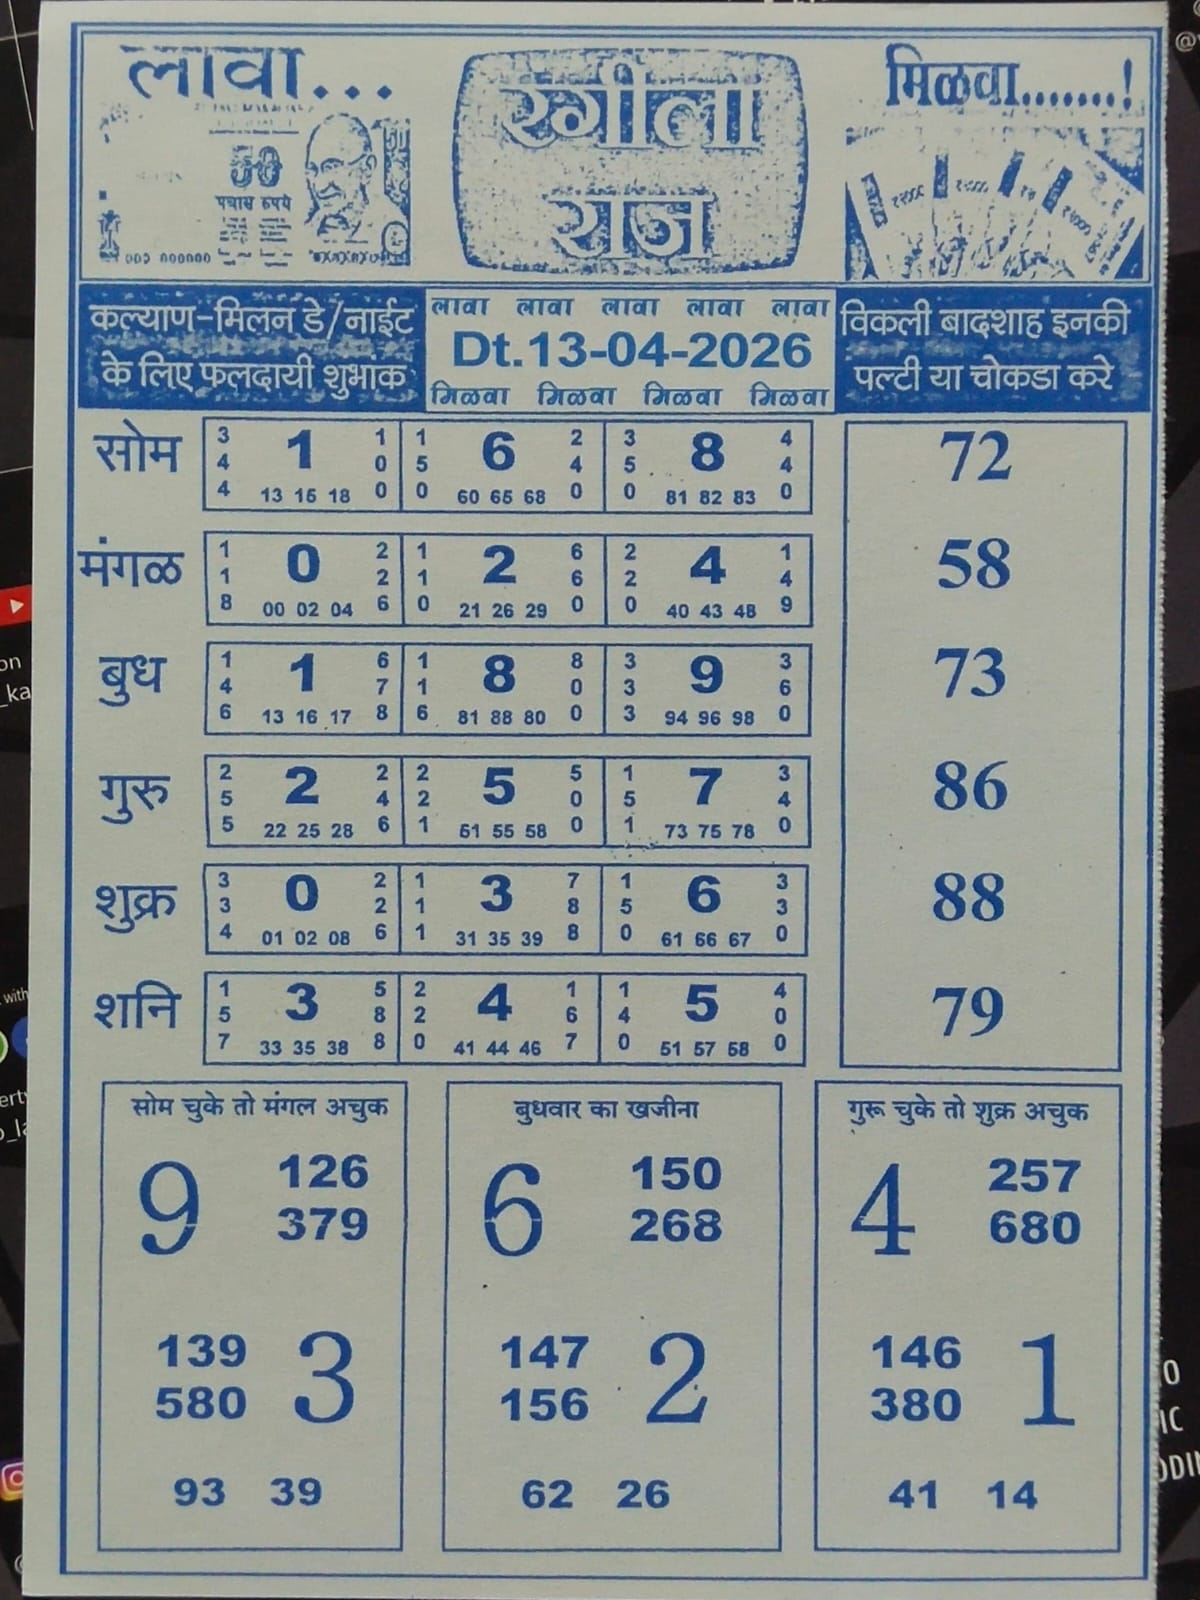 लावा...
रंगीला
राज
मिळवा.......!
पचास रुपये
कल्याण-मिलन डे/नाईट
के लिए फलदायी शुभांक
लावा लावा लावा लावा लावा
Dt.13-04-2026
मिळवा मिळवा मिळवा मिळवा
विकली बादशाह इनकी
पल्टी या चोकडा करे
सोम
3 4 4
1
1 0 0
13 15 18
1 5 0
6
2 4 0
60 65 68
3 5 0
8
4 4 0
81 82 83
72
मंगळ
1 1 8
0
2 2 6
00 02 04
1 1 0
2
6 6 0
21 26 29
2 2 0
4
1 4 9
40 43 48
58
बुध
1 4 6
1
6 7 8
13 16 17
1 1 6
8
8 0 0
81 88 80
3 3 3
9
3 6 0
94 96 98
73
गुरु
2 5 5
2
2 4 6
22 25 28
2 2 1
5
5 0 0
51 55 58
1 5 1
7
3 4 0
73 75 78
86
शुक्र
3 3 4
0
2 2 6
01 02 08
1 1 1
3
7 8 8
31 35 39
1 5 0
6
3 3 0
61 66 67
88
शनि
1 5 7
3
5 8 8
33 35 38
2 2 0
4
1 6 7
41 44 46
1 4 0
5
4 0 0
51 57 58
79
सोम चुके तो मंगल अचुक
9
126
379
139
580
3
93 39
बुधवार का खजीना
6
150
268
147
156
2
62 26
गुरू चुके तो शुक्र अचुक
4
257
680
146
380
1
41 14